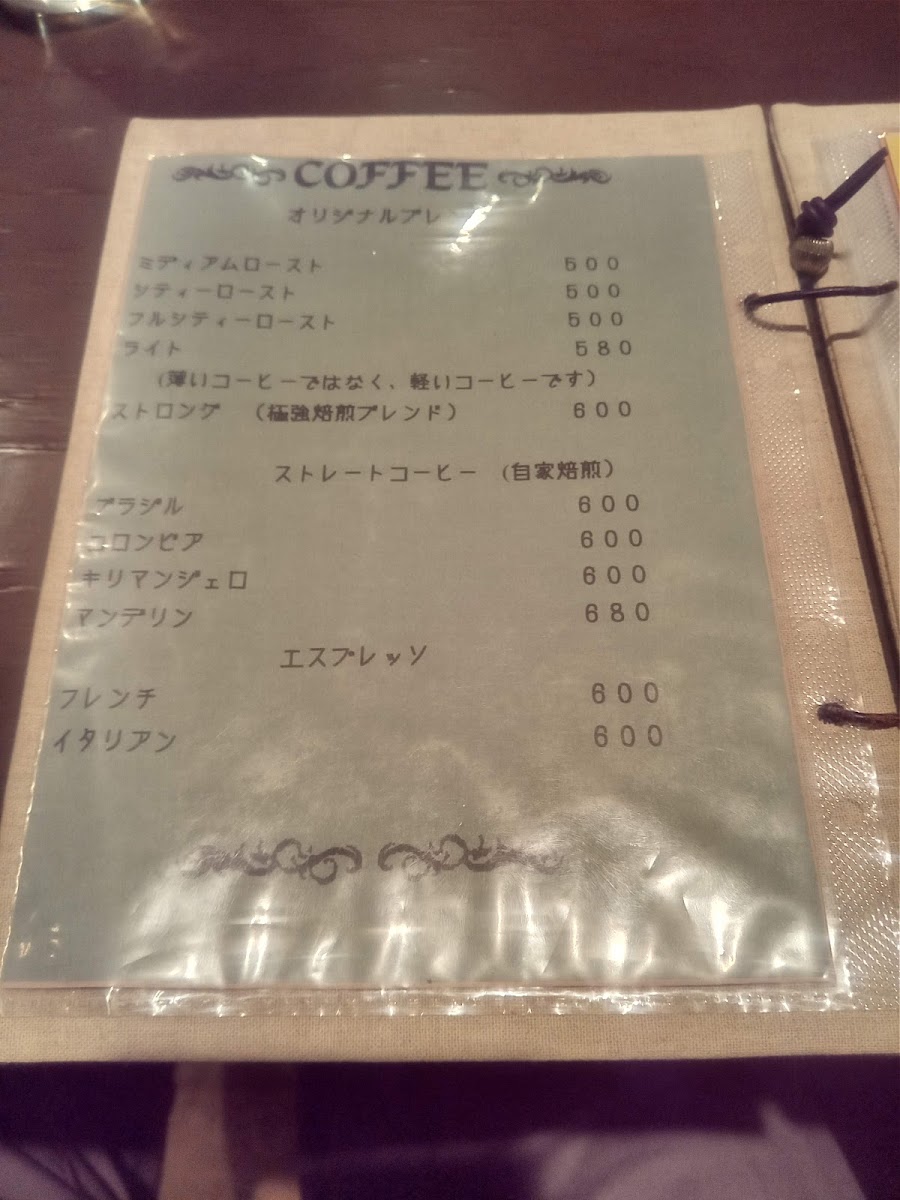 COFFEE
オリジナルブレ
ミディアムロースト 500
シティーロースト 500
フルシティーロースト 500
ライト 580
(薄いコーヒーではなく、軽いコーヒーです)
ストロング (極強焙煎ブレンド) 600
ストレートコーヒー (自家焙煎)
ブラジル 600
コロンビア 600
キリマンジェロ 600
マンデリン 680
エスプレッソ
フレンチ 600
イタリアン 600